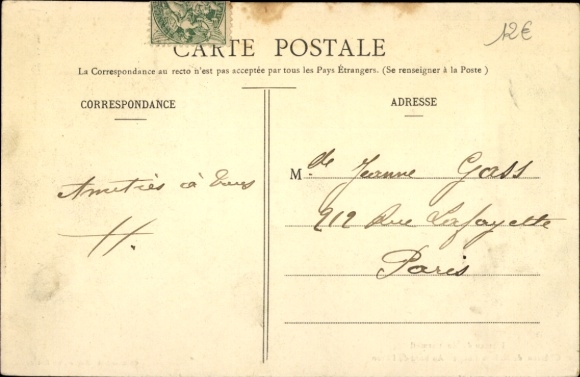 12€
CARTE POSTALE
La Correspondance au recto n'est pas acceptée par tous les Pays Étrangers. (Se renseigner à la Poste)
CORRESPONDANCE
Amitiés à tous
H.
ADRESSE
Mde Jeanne Gass
212 Rue Lafayette
Paris